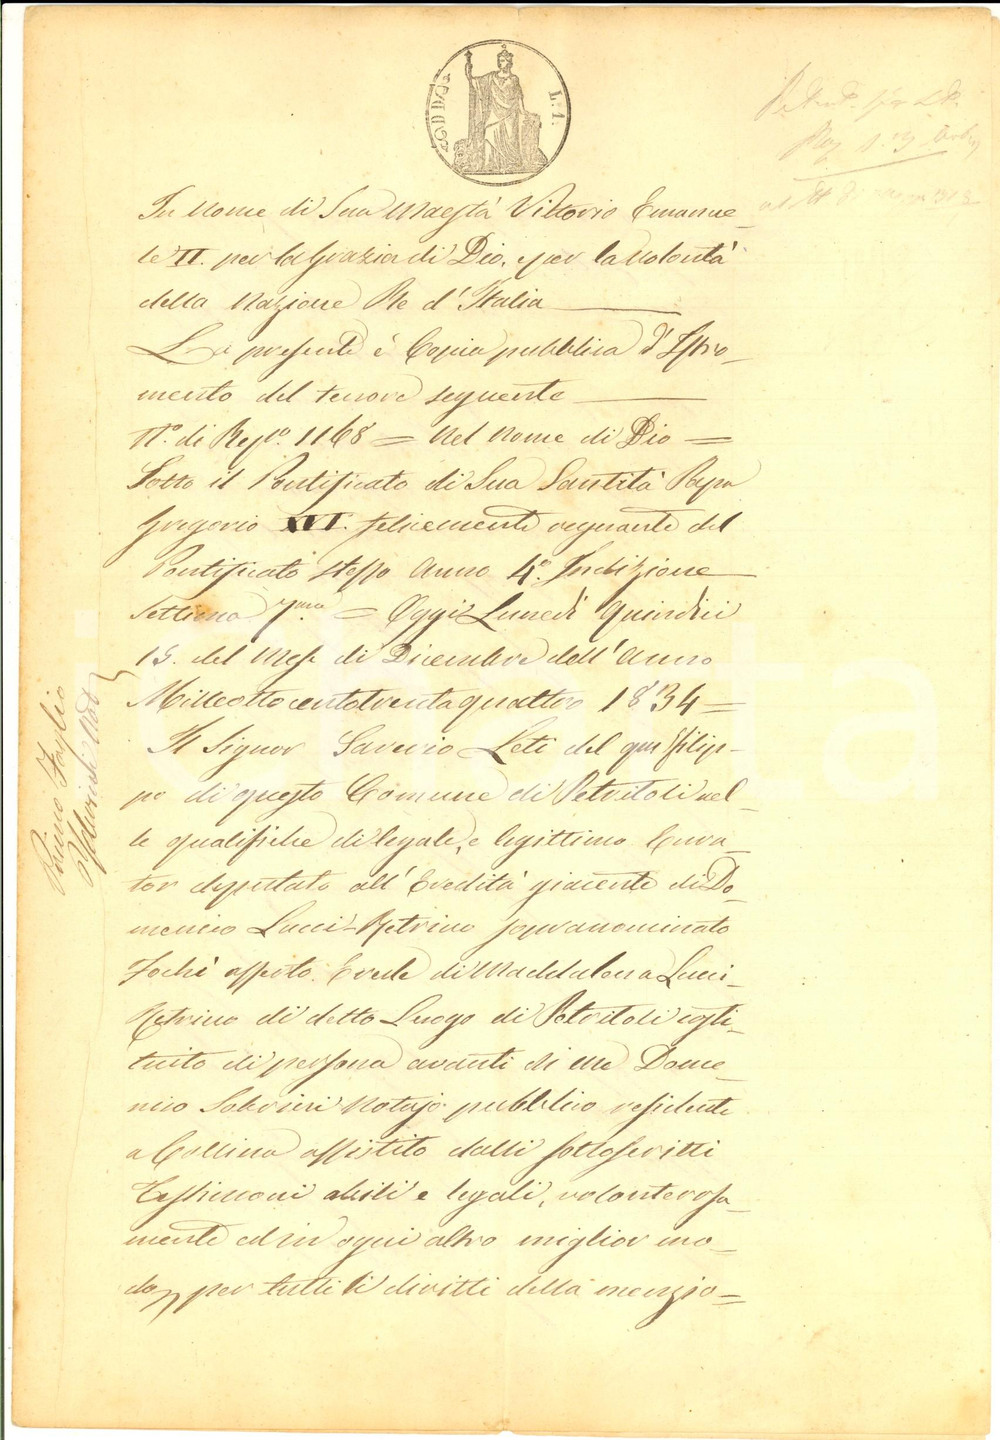 L. 1.
In Nome di Sua Maestà Vittorio Emanue_
le II. per la Grazia di Dio, e per la Volontà
della Nazione Re d'Italia
La presente è Copia pubblica d'Istro_
mento del tenore seguente
N.° di Rep.° 1168 = Nel Nome di Dio =
Sotto il Pontificato di Sua Santità Papa
Gregorio XVI. felicemente regnante del
Pontificato stesso Anno 4.° Indizione
Settima 7.ma = Oggi Lunedì quindici
15. del Mese di Dicembre dell'Anno
Milleottocentotrentaquattro 1834 =
Il Signor Saverio Leti del qm Filip-
po di questo Comune di Petritoli nel_
le qualifiche di legale, e legittimo Cura_
tor deputato all'Eredità giacente di Do_
menico Lucci-Petrino sopranominato
asserto Erede di Maddalena Lucci_
Petrino di detto Luogo di Petritoli costi_
tuito di persona avanti di me Dome_
nico Notajo pubblico residente
a Collina assistito dalli sottoscritti
Testimoni abili e legali, volonterosa_
mente ed in ogni altro miglior mo_
do, per tutti li diritti della menzio=
Primo Foglio